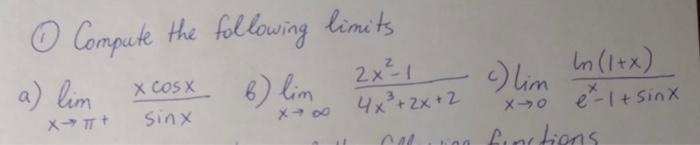 ① Compute the following limits
a) lim x→π+ x cosx / sinx b) lim x→∞ 2x²-1 / 4x³+2x+2 c) lim x→0 ln(1+x) / eˣ-1+sinx
functions